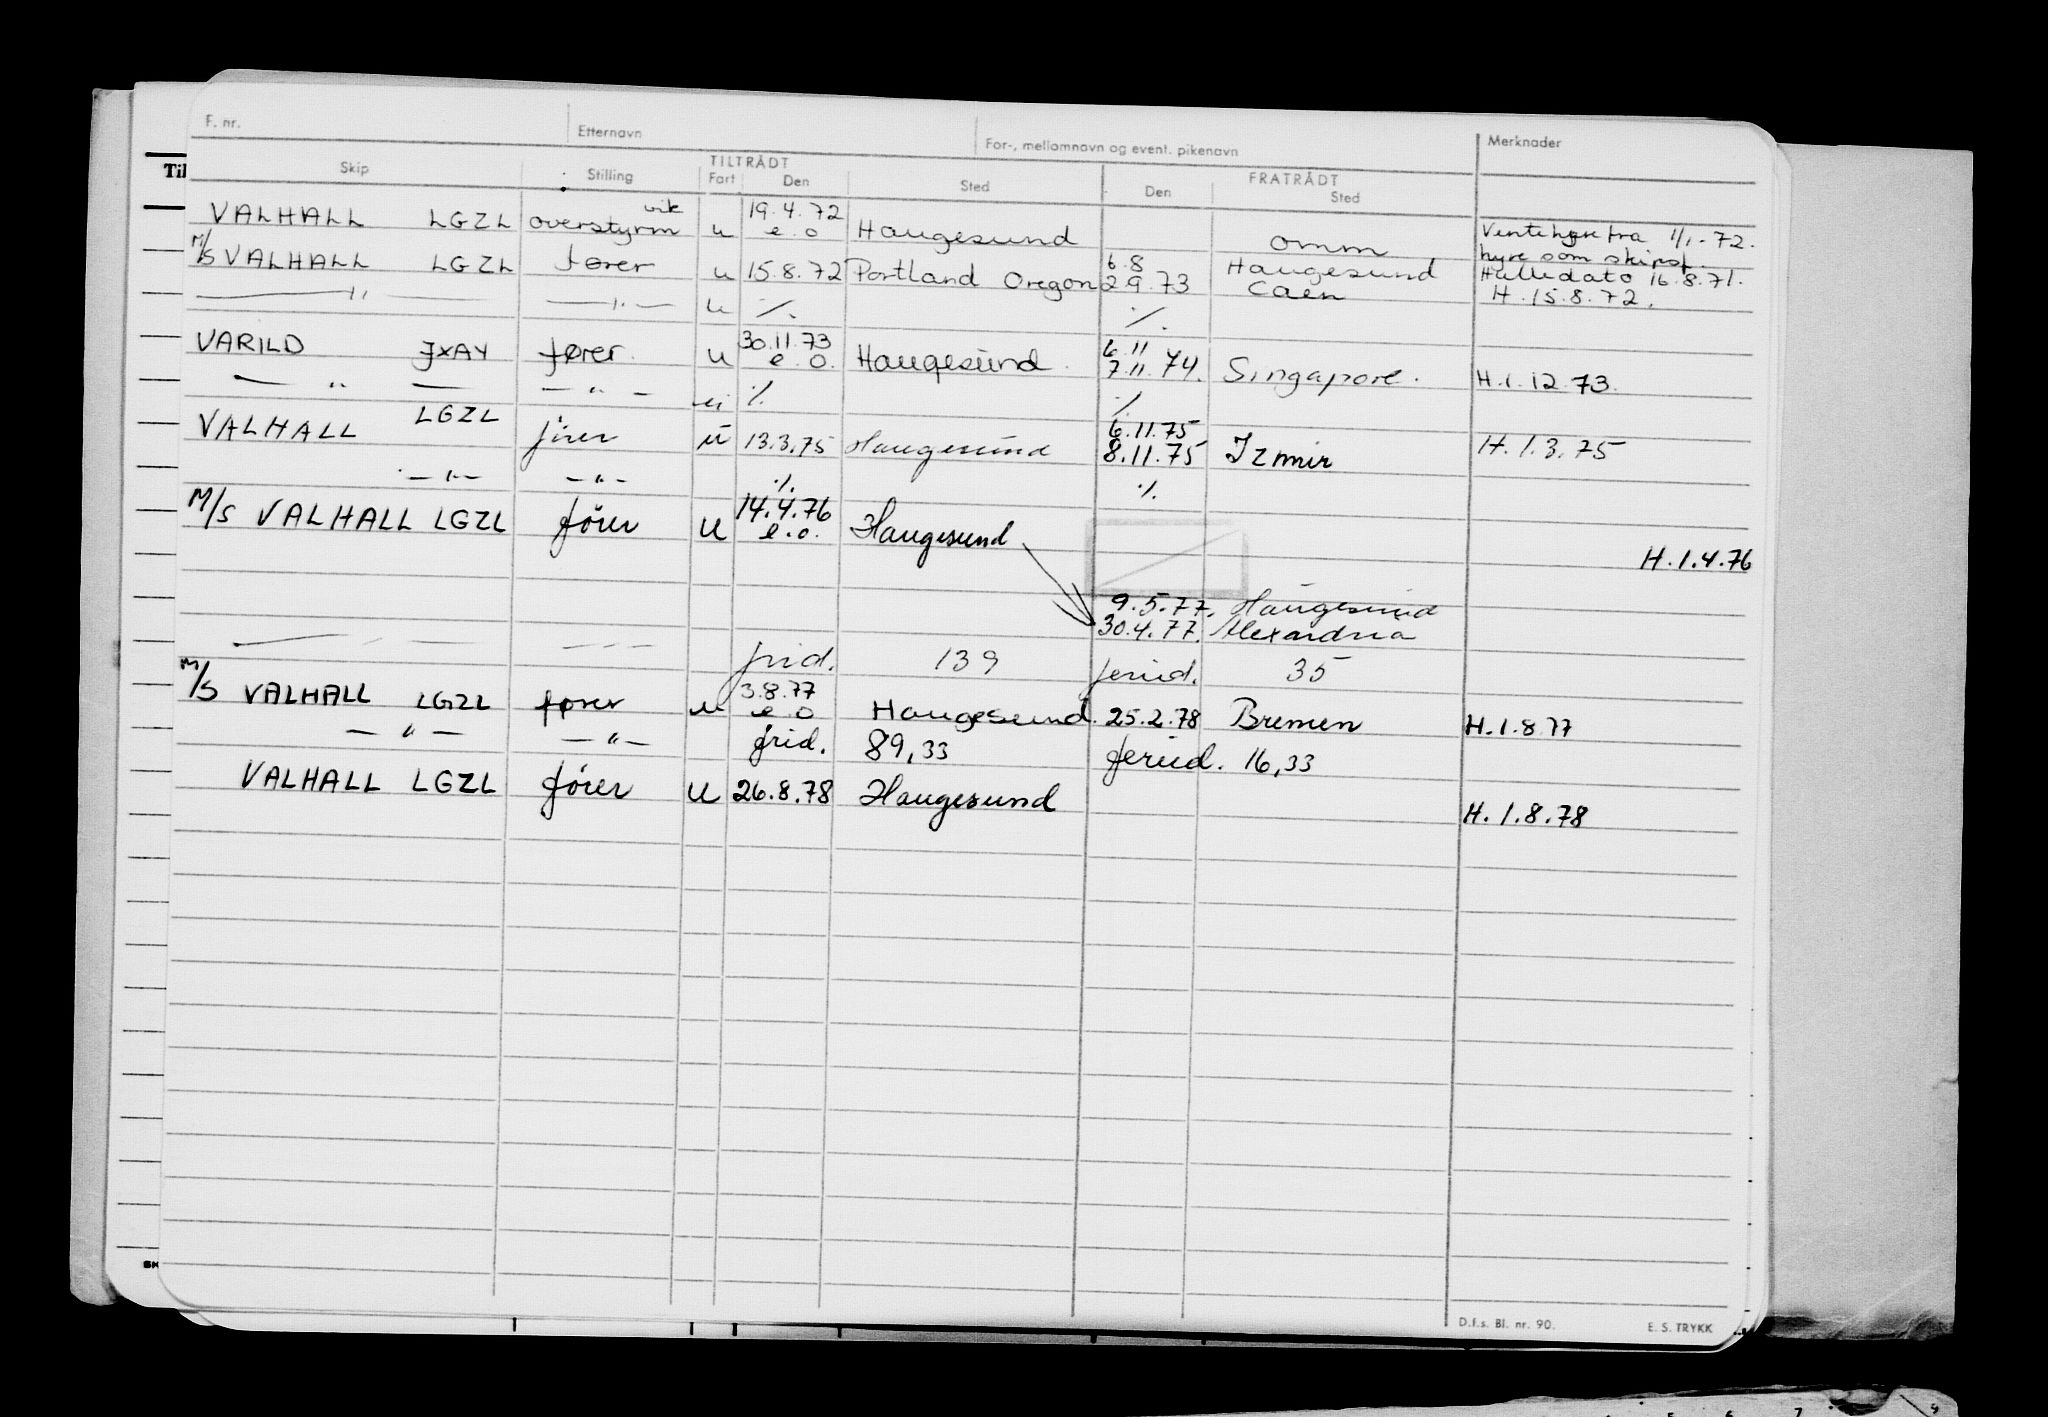 F. nr. Etternavn For-, mellomnavn og event. pikenavn Merknader
TILTRÅDT FRATRÅDT
Til Skip Stilling Fart Den Sted Den Sted
vik 19.4.72
VALHALL LGZL overstyrm u e.o Haugesund omm Ventehyre fra 1/1-72.
hyre som skipsf.
M/S VALHALL LGZL fører u 15.8.72 Portland Oregon 6.8 Haugesund Hulledato 16.8.71.
2.9.73 Caen H. 15.8.72.
— " — — " — u ./. ./.
30.11.73 6.11
VARILD JXAY fører u e.o. Haugesund. 7.11.74. Singapore. H.1.12.73.
— " — — " — ./. ./.
LGZL 6.11.75
VALHALL fører u 13.3.75 Haugesund 8.11.75 Izmir H.1.3.75
— " — — " — ./. ./.
14.4.76
M/S VALHALL LGZL fører u e.o. Haugesund H.1.4.76
9.5.77. Haugesund
30.4.77. Alexandria
frid. 139 feried. 35
3.8.77
M/S VALHALL LGZL fører u e.o Haugesund. 25.2.78 Bremen H.1.8.77
— " — — " — frid. 89,33 feried. 16,33
VALHALL LGZL fører u 26.8.78 Haugesund H.1.8.78
D.f.s. Bl. nr. 90. E. S. TRYKK